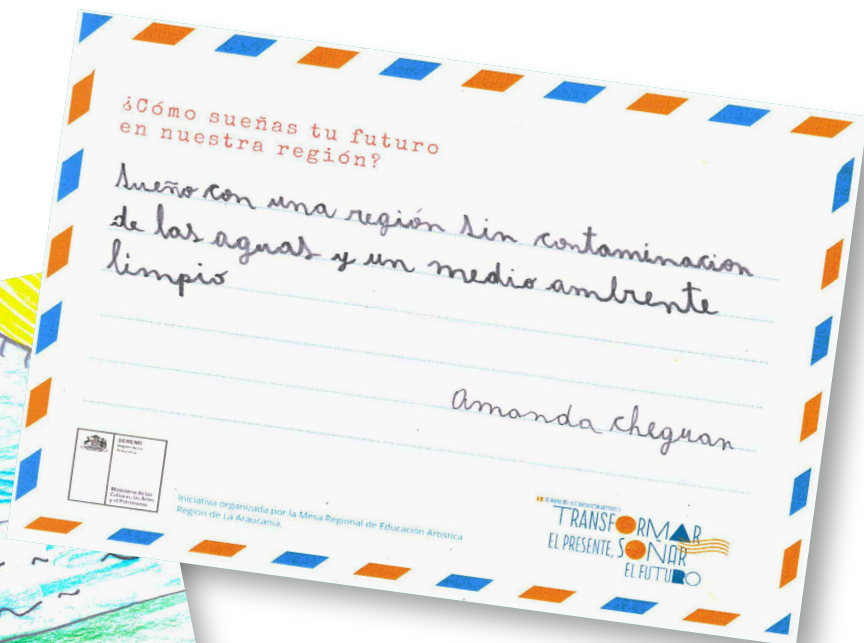 ¿Cómo sueñas tu futuro
en nuestra región?
Sueño con una región sin contaminacion
de las aguas y un medio ambrente
limpio
Amanda cheguan
SEREMI
Región de La
Araucanía
Ministerio de las
Culturas, las Artes
y el Patrimonio
Iniciativa organizada por la Mesa Regional de Educación Artística
Región de La Araucanía.
TRANSFORMAR
EL PRESENTE, SOÑAR
EL FUTURO